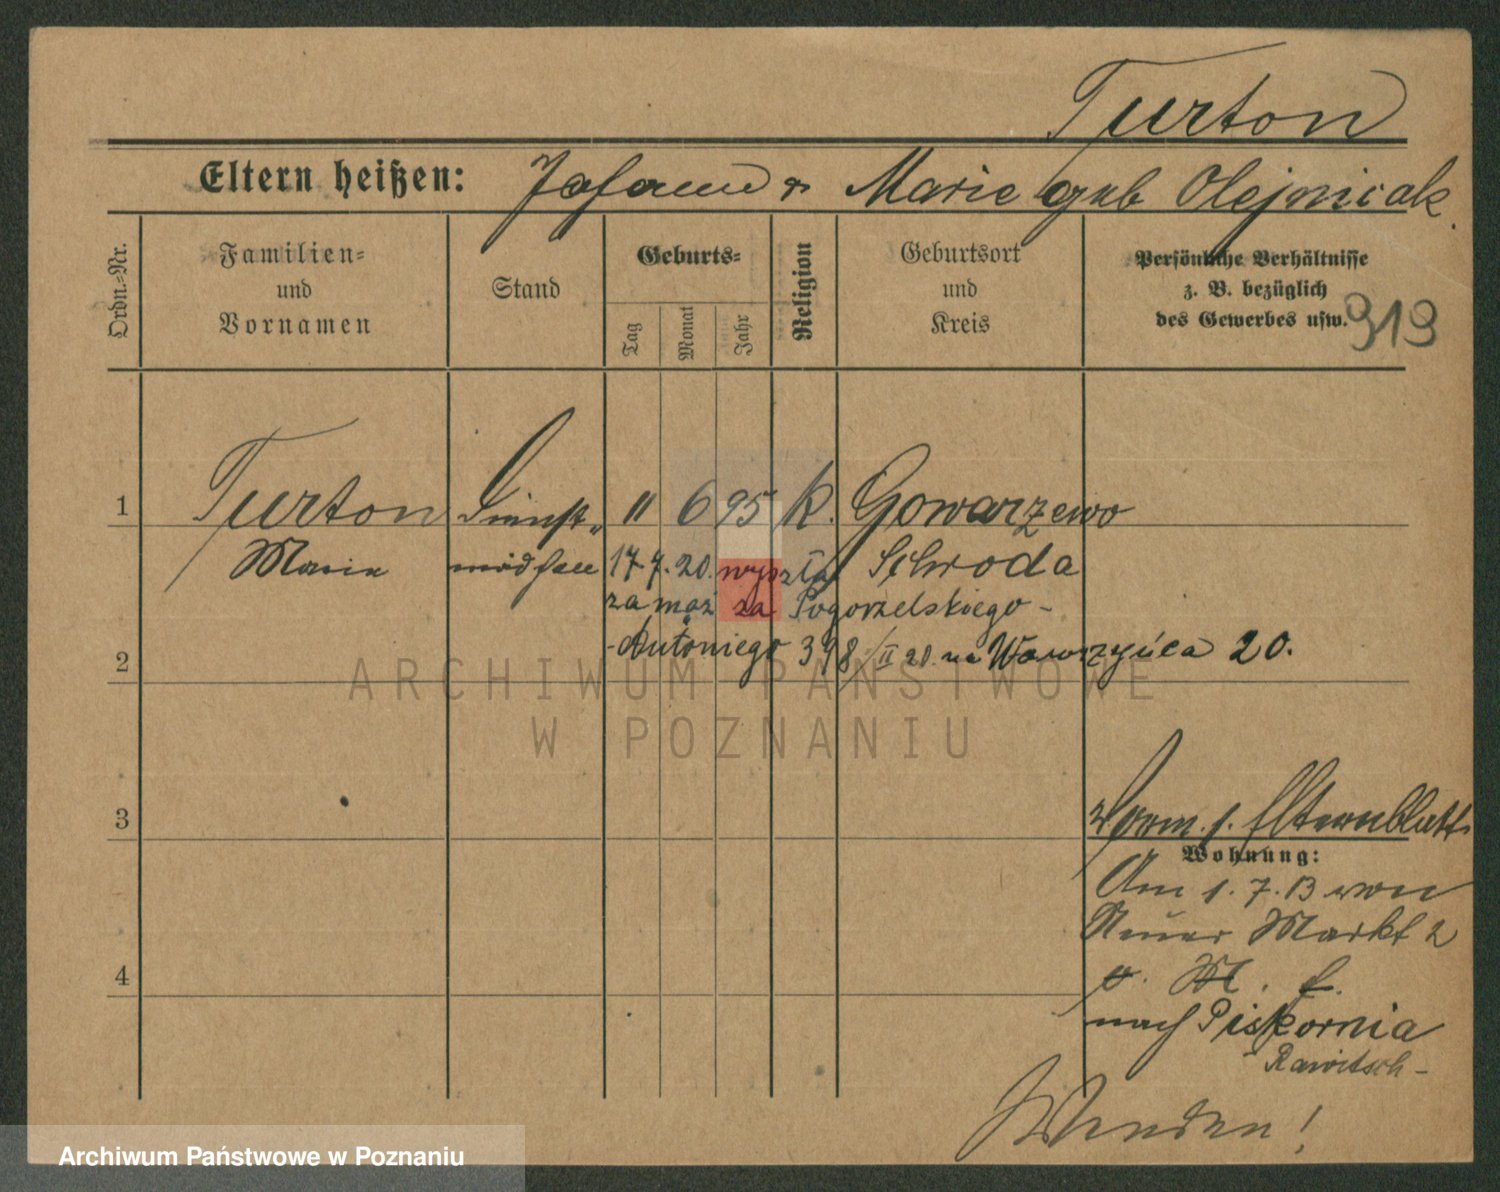 Turton
Eltern heißen: Johann & Marie geb Olejniczak.
Ordn.-Nr.
Familien-
und
Vornamen
Stand
Geburts-
Tag
Monat
Jahr
Religion
Geburtsort
und
Kreis
Persönliche Verhältnisse
z. B. bezüglich
des Gewerbes usw.
919
1 Turton Dienst- 11 6 95 k. Gowarzewo
Marie mädchen 17.7.20. wyszła Schroda
za mąż za Pogorzelskiego -
-Antoniego 398/II 20. na Wawrzyńca 20.
2
ARCHIWUM PAŃSTWOWE
W POZNANIU
3
Vorm. s. Elternblatt
Wohnung:
Am 1.7.13 von
Neuer Markt 2
nach Piskornia
Rawitsch-
4
Wenden!
Archiwum Państwowe w Poznaniu